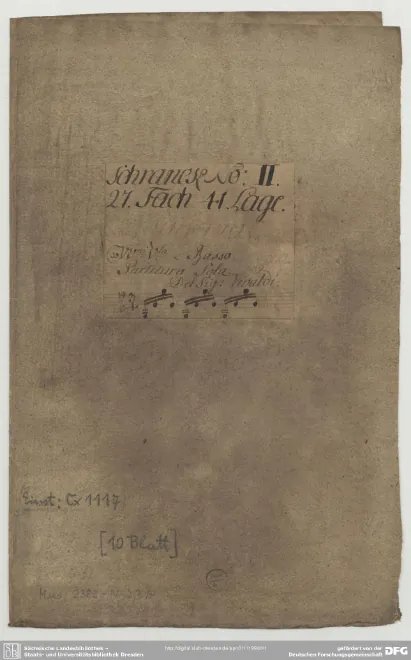 Schranck No: II.
27. Fach 41. Lage.
Basso
Partitura Sola
Del Sigr Vivaldi
Einst: Cx 1117
[10 Blatt]
Mus. 2389-N-
Sächsische Landesbibliothek –
Staats- und Universitätsbibliothek Dresden
gefördert von der
Deutschen Forschungsgemeinschaft DFG